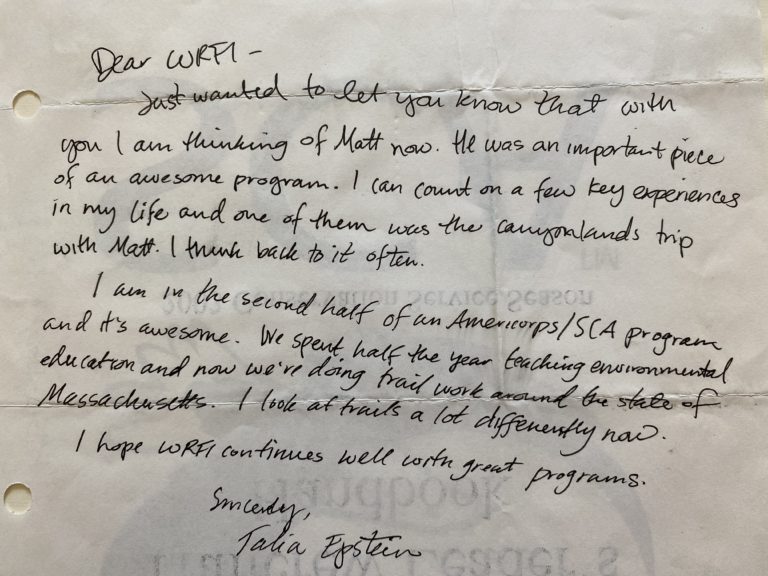 Dear WRFI -
Just wanted to let you know that with
you I am thinking of Matt now. He was an important piece
of an awesome program. I can count on a few key experiences
in my life and one of them was the canyonlands trip
with Matt. I think back to it often.
I am in the second half of an Americorps/SCA program
and it's awesome. We spent half the year teaching environmental
education and now we're doing trail work around the state of
Massachusetts. I look at trails a lot differently now.
I hope WRFI continues well with great programs.
Sincerely,
Talia Epstein
Conservation Service Season
Handbook
Leader's